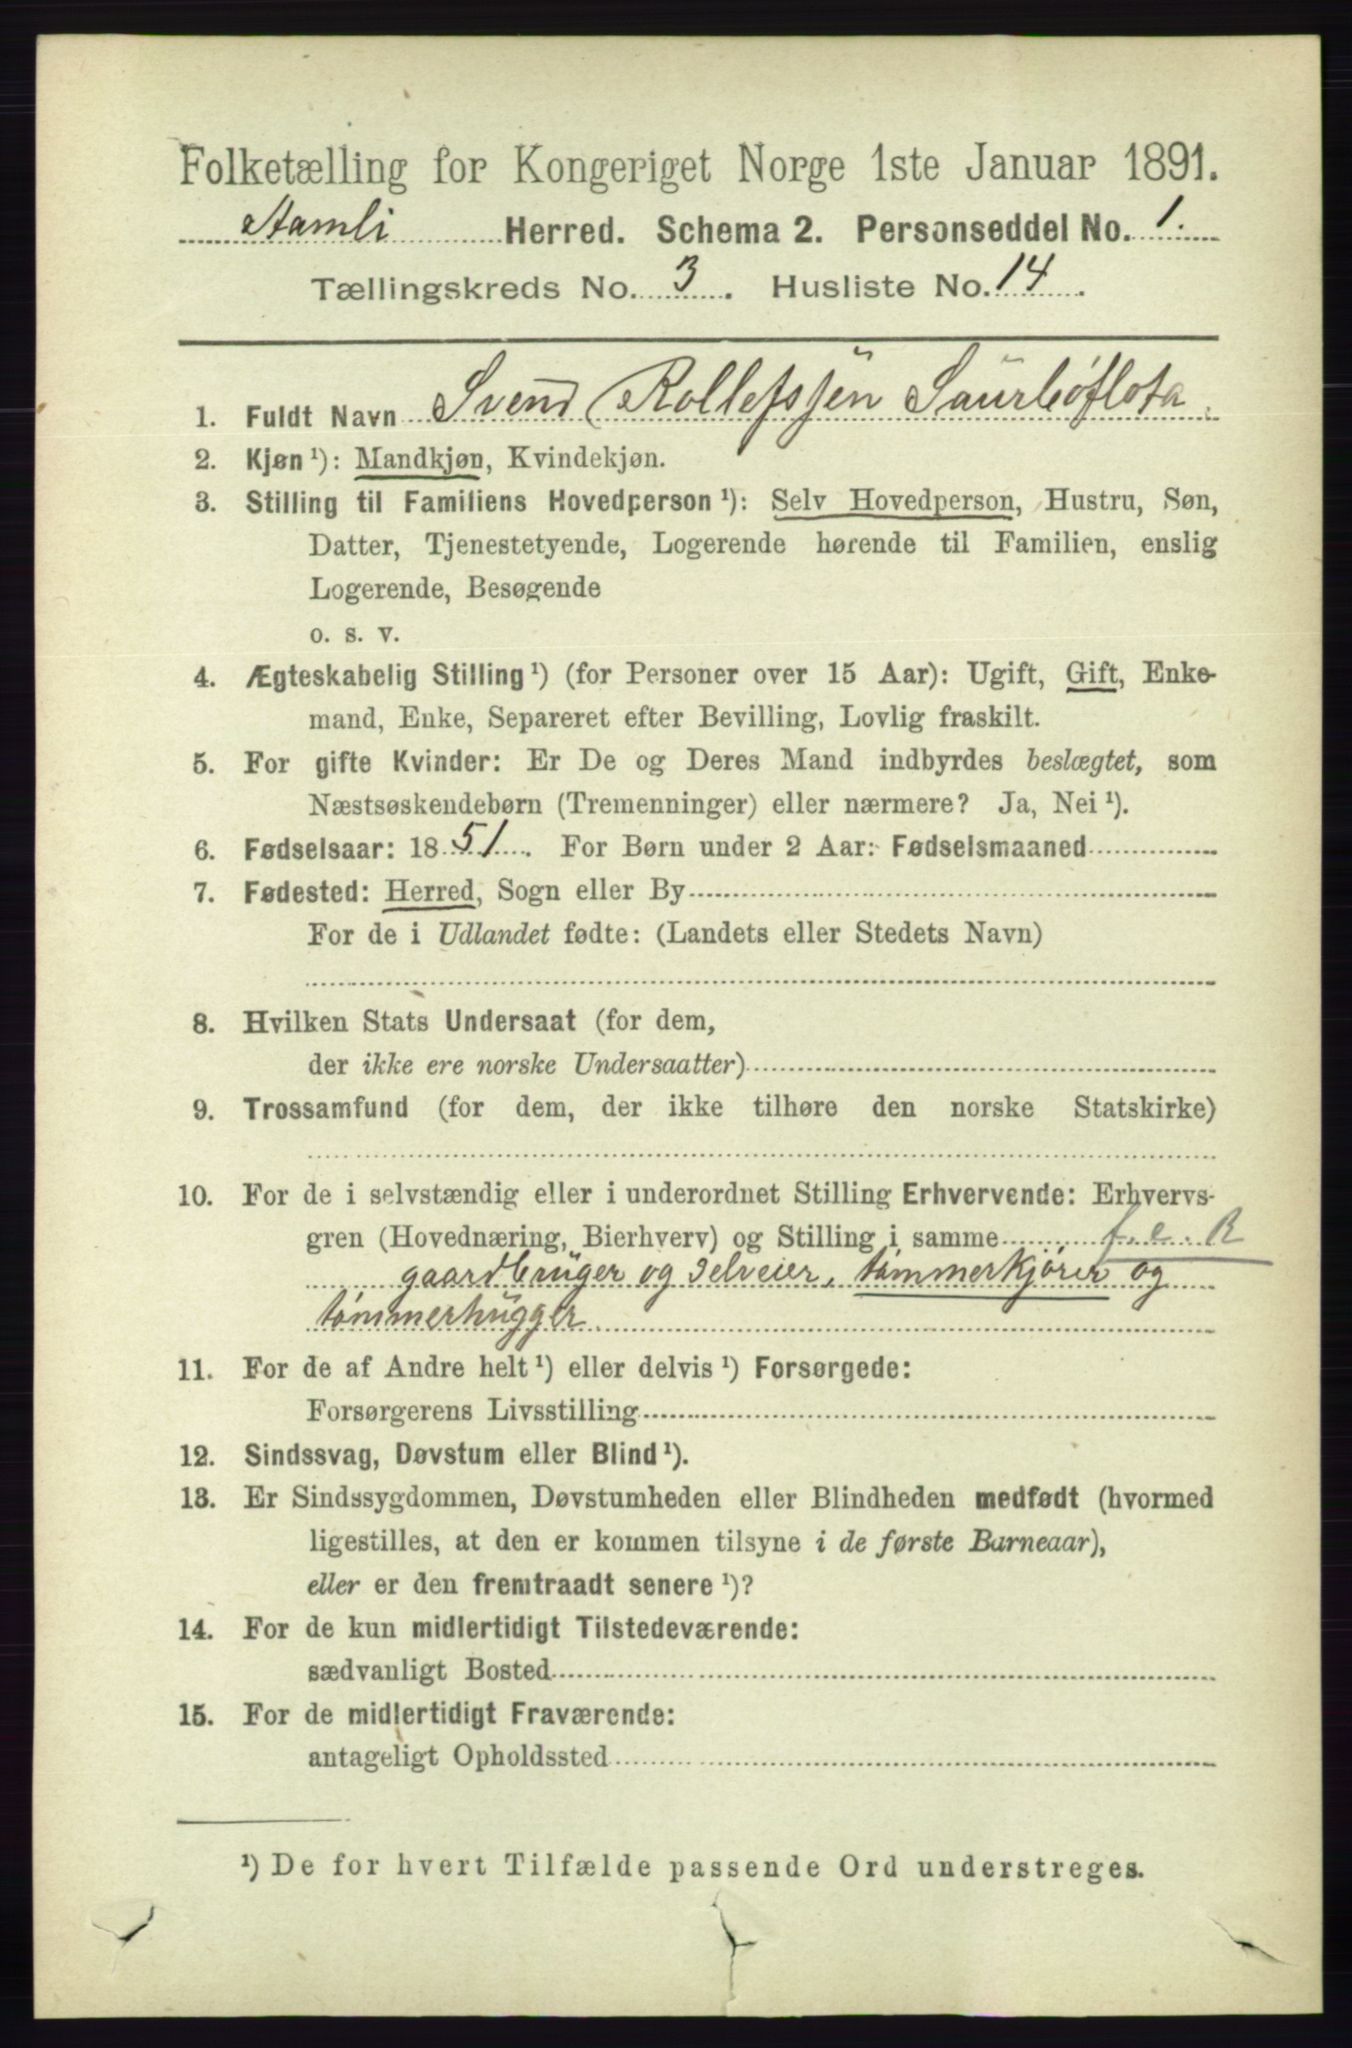 Folketælling for Kongeriget Norge 1ste Januar 1891.
Åamli Herred. Schema 2. Personseddel No. 1.
Tællingskreds No. 3. Husliste No. 14.
1. Fuldt Navn Svend Rollefssen Saurbøflota.
2. Kjøn ¹): Mandkjøn, Kvindekjøn.
3. Stilling til Familiens Hovedperson ¹): Selv Hovedperson, Hustru, Søn,
Datter, Tjenestetyende, Logerende hørende til Familien, enslig
Logerende, Besøgende
o. s. v.
4. Ægteskabelig Stilling ¹) (for Personer over 15 Aar): Ugift, Gift, Enke-
mand, Enke, Separeret efter Bevilling, Lovlig fraskilt.
5. For gifte Kvinder: Er De og Deres Mand indbyrdes beslægtet, som
Næstsøskendebørn (Tremenninger) eller nærmere? Ja, Nei ¹).
6. Fødselsaar: 1851. For Børn under 2 Aar: Fødselsmaaned
7. Fødested: Herred, Sogn eller By
For de i Udlandet fødte: (Landets eller Stedets Navn)
8. Hvilken Stats Undersaat (for dem,
der ikke ere norske Undersaatter)
9. Trossamfund (for dem, der ikke tilhøre den norske Statskirke)
10. For de i selvstændig eller i underordnet Stilling Erhvervende: Erhvervs-
gren (Hovednæring, Bierhverv) og Stilling i samme f. e. R
gaardbruger og selveier, tømmerkjører og
tømmerhugger.
11. For de af Andre helt ¹) eller delvis ¹) Forsørgede:
Forsørgerens Livsstilling
12. Sindssvag, Døvstum eller Blind ¹).
13. Er Sindssygdommen, Døvstumheden eller Blindheden medfødt (hvormed
ligestilles, at den er kommen tilsyne i de første Barneaar),
eller er den fremtraadt senere ¹)?
14. For de kun midlertidigt Tilstedeværende:
sædvanligt Bosted
15. For de midlertidigt Fraværende:
antageligt Opholdssted
¹) De for hvert Tilfælde passende Ord understreges.